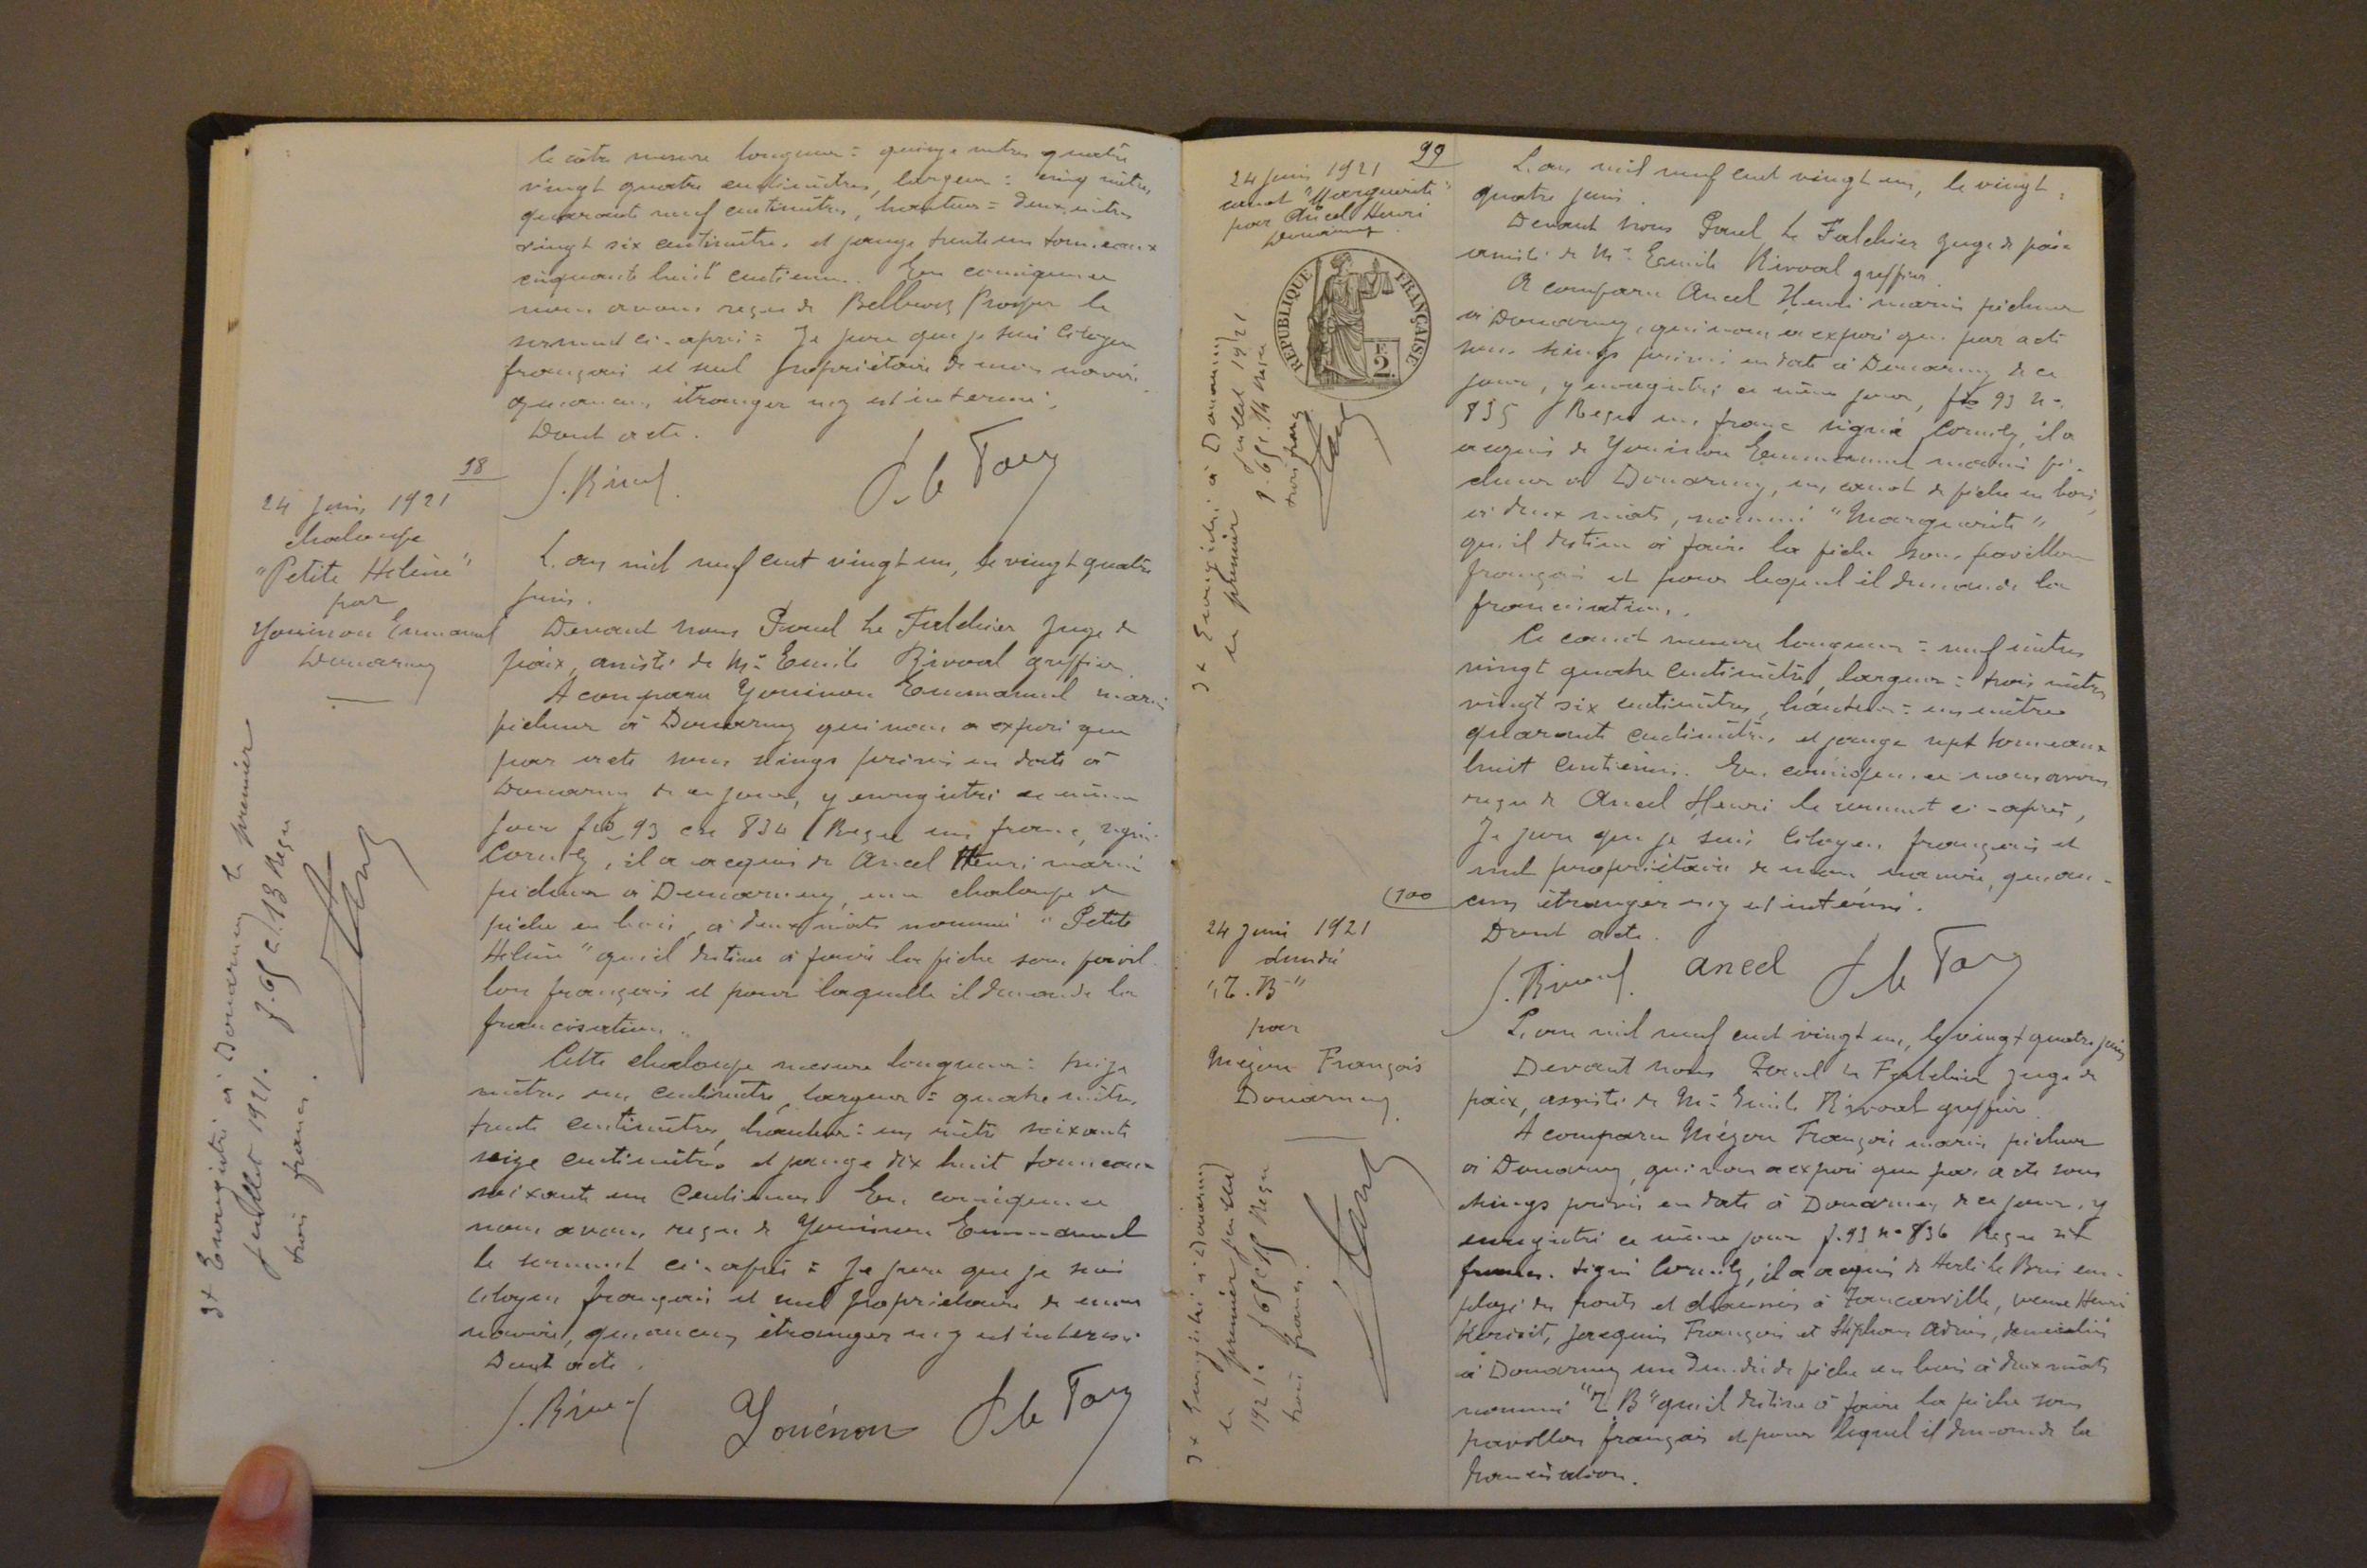 le côtre mesure longueur = quinze mètres quatre
vingt quatre centimètres, largeur : cinq mètres
quarante neuf centimètres, hauteur = deux mètres
vingt six centimètres et jauge trente un tonneaux
cinquante huit centièmes. En conséquence
nous avons reçu de Prosper le
serment ci-après = Je jure que je suis citoyen
français et seul propriétaire de mon navire
qu'aucun étranger n'y est intéressé,
Dont acte.
98
24 juin 1921
chaloupe
"Petite Hélène"
par
Youinou Emmanuel
Douarnenez
3+ Enregistré à Douarnenez le premier
juillet 1921. f. 65 c. 13 Reçu
trois francs.
L'an mil neuf cent vingt un, le vingt quatre
juin.
Devant nous Paul Le Falchier juge de
paix, assisté de Me Emile Rivoal greffier
A comparu Youinou Emmanuel marin
pêcheur à Douarnenez qui nous a exposé que
par acte sous seings privés en date à
Douarnenez de ce jour, y enregistré ce même
jour fo 93 cse 834 Reçu un franc, signé
Cornily, il a acquis de Ancel Henri marin
pêcheur à Douarnenez, une chaloupe de
pêche en bois, à deux mâts nommé "Petite
Hélène" qu'il destine à faire la pêche sous pavil
lon français et pour laquelle il demande la
francisation.
Cette chaloupe mesure longueur : treize
mètres un centimètre, largeur = quatre mètres
trente centimètres, hauteur = un mètre soixante
seize centimètres et jauge dix huit tonneaux
soixante un centièmes. En conséquence
nous avons reçu de Youinou Emmanuel
le serment ci-après = Je jure que je suis
citoyen français et seul propriétaire de mon
navire, qu'aucun étranger n'y est intéressé
Dont acte.
Youénou
99
24 juin 1921
canot "Marguerite"
par Ancel Henri
Douarnenez
REPUBLIQUE FRANÇAISE
F.
2.
3+ Enregistré à Douarnenez
le premier juillet 1921
f. 65 c. 14 Reçu
trois francs
L'an mil neuf cent vingt un, le vingt =
quatre juin.
Devant nous Paul Le Falchier juge de paix
assisté de Me Emile Rivoal greffier
A comparu Ancel Henri marin pêcheur
à Douarnenez, qui nous a exposé que par acte
sous seings privés en date à Douarnenez de ce
jour, y enregistré ce même jour, fo 93 no
835 Reçu un franc signé Cornily, il a
acquis de Youinou Emmanuel marin pê-
cheur à Douarnenez, un canot de pêche en bois,
à deux mâts, nommé "Marguerite"
qu'il destine à faire la pêche sous pavillon
français et pour lequel il demande la
francisation.
Ce canot mesure longueur = neuf mètres
vingt quatre centimètres, largeur = trois mètres
vingt six centimètres, hauteur = un mètre
quarante centimètres et jauge sept tonneaux
huit centièmes. En conséquence nous avons
reçu de Ancel Henri le serment ci-après,
Je jure que je suis citoyen français et
seul propriétaire de mon navire, qu'au-
cun étranger n'y est intéressé.
Dont acte.
ancel
100
24 juin 1921
dundée
"Z. B"
par
Mézou François
Douarnenez
3+ Enregistré à Douarnenez
le premier juillet
1921. f 65 c 15 Reçu
trois francs.
L'an mil neuf cent vingt un, le vingt quatre juin
Devant nous Paul Le Falchier juge de
paix, assisté de Me Emile Rivoal greffier.
A comparu Mézou François marin pêcheur
à Douarnenez, qui nous a exposé que par acte sous
seings privés en date à Douarnenez de ce jour, y
enregistré ce même jour f. 93 no 836 Reçu
francs. signé Cornily, il a acquis de Le Bris em-
ployé des ponts et chaussées à Tancarville, veuve Henri
Kerisit, Jacquin François et Stéphan, domiciliés
à Douarnenez un dundée de pêche en bois à deux mâts
nommé "Z B" qu'il destine à faire la pêche sous
pavillon français et pour lequel il demande la
francisation.